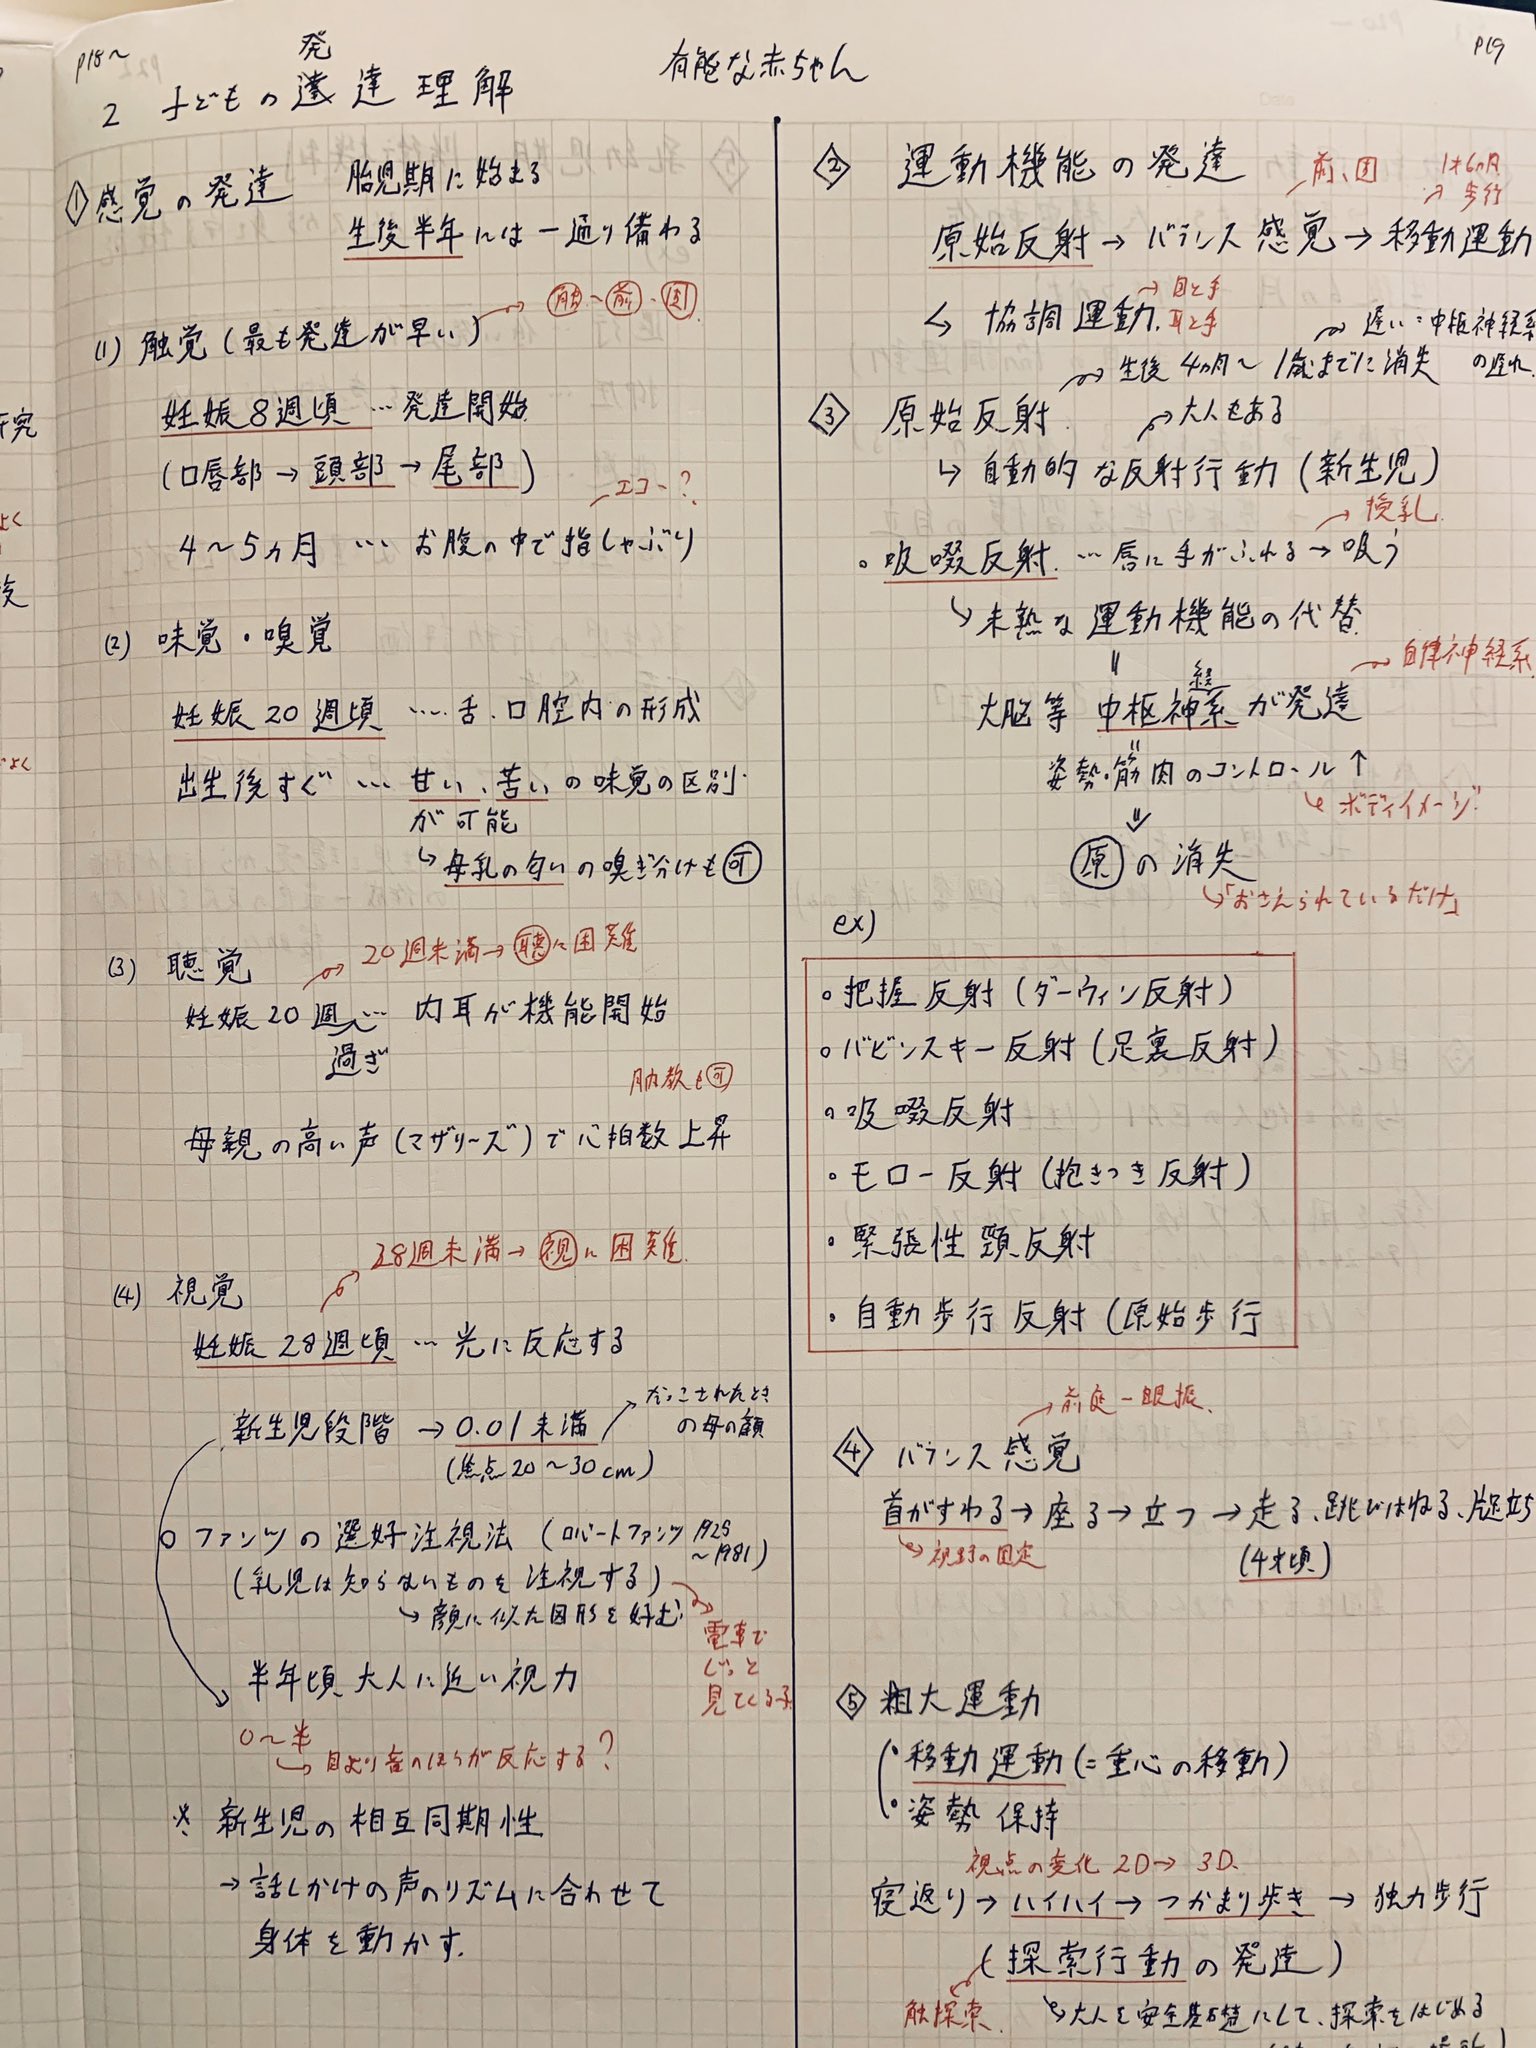 P18～
発
2 子どもの発達理解
有能な赤ちゃん
P19
① 感覚の発達
胎児期に始まる
生後半年には一通り備わる
触～前・固
(1) 触覚(最も発達が早い)
妊娠8週頃 …発達開始
(口唇部→頭部→尾部)
エコー?
4～5ヵ月 … お腹の中で指しゃぶり
(2) 味覚・嗅覚
妊娠20週頃 …舌、口腔内の形成
出生後すぐ … 甘い、苦いの味覚の区別
が可能
↳母乳の匂いの嗅ぎ分けも可
20週未満→聴に困難
(3) 聴覚
妊娠20週 … 内耳が機能開始
過ぎ
胎教も可
母親の高い声(マザリーズ)で心拍数上昇
28週未満→視に困難
(4) 視覚
妊娠28週頃 … 光に反応する
新生児段階 → 0.01未満
だっこされたとき
の母の顔
(焦点20～30cm)
○ファンツの選好注視法(ロバートファンツ 1925
～1981)
(乳児は知らないものを注視する)
↳顔に似た図形を好む
電車で
じっと
見てくる子
半年頃 大人に近い視力
0～半
↳目より音のほうが反応する?
※ 新生児の相互同期性
→話しかけの声のリズムに合わせて
身体を動かす。
② 運動機能の発達
前、固
1才6ヵ月
→歩行
原始反射→バランス感覚→移動運動
→目と手
↳ 協調運動、耳と手
→遅い=中枢神経系
の遅れ
→生後4ヵ月～1歳までに消失
③ 原始反射
→大人もある
↳自動的な反射行動(新生児)
→授乳
・吸啜反射 …唇に手がふれる→吸う
↳未熟な運動機能の代替
〃
→自律神経系
経
大脳等 中枢神系が発達
〃
姿勢・筋肉のコントロール↑
↳ボディイメージ
原の消失
↳「おさえられているだけ」
ex)
・把握反射(ダーウィン反射)
・バビンスキー反射(足裏反射)
・吸啜反射
・モロー反射(抱きつき反射)
・緊張性頸反射
・自動歩行反射(原始歩行
→前庭ー眼振
④ バランス感覚
首がすわる→座る→立つ→走る、跳びはねる、片足立ち
↳視野の固定
(4才頃)
⑤ 粗大運動
・移動運動(=重心の移動)
・姿勢保持
視点の変化 2D→3D
寝返り→ハイハイ→つかまり歩き→独力歩行
(探索行動の発達)
触探索
↳大人を安全基礎にして、探索をはじめる